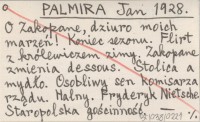 PALMIRA Jan 1928.
O Zakopane, dziuro moich
marzeń! Koniec sezonu. Flirt
z królewiczem zimy. Zakopane
zmienia dessous. Stolica a
mydło. Osobliwy sen komisarza
rządu. Halny. Fryderyk Nietsche.
Staropolska gościnność —
%